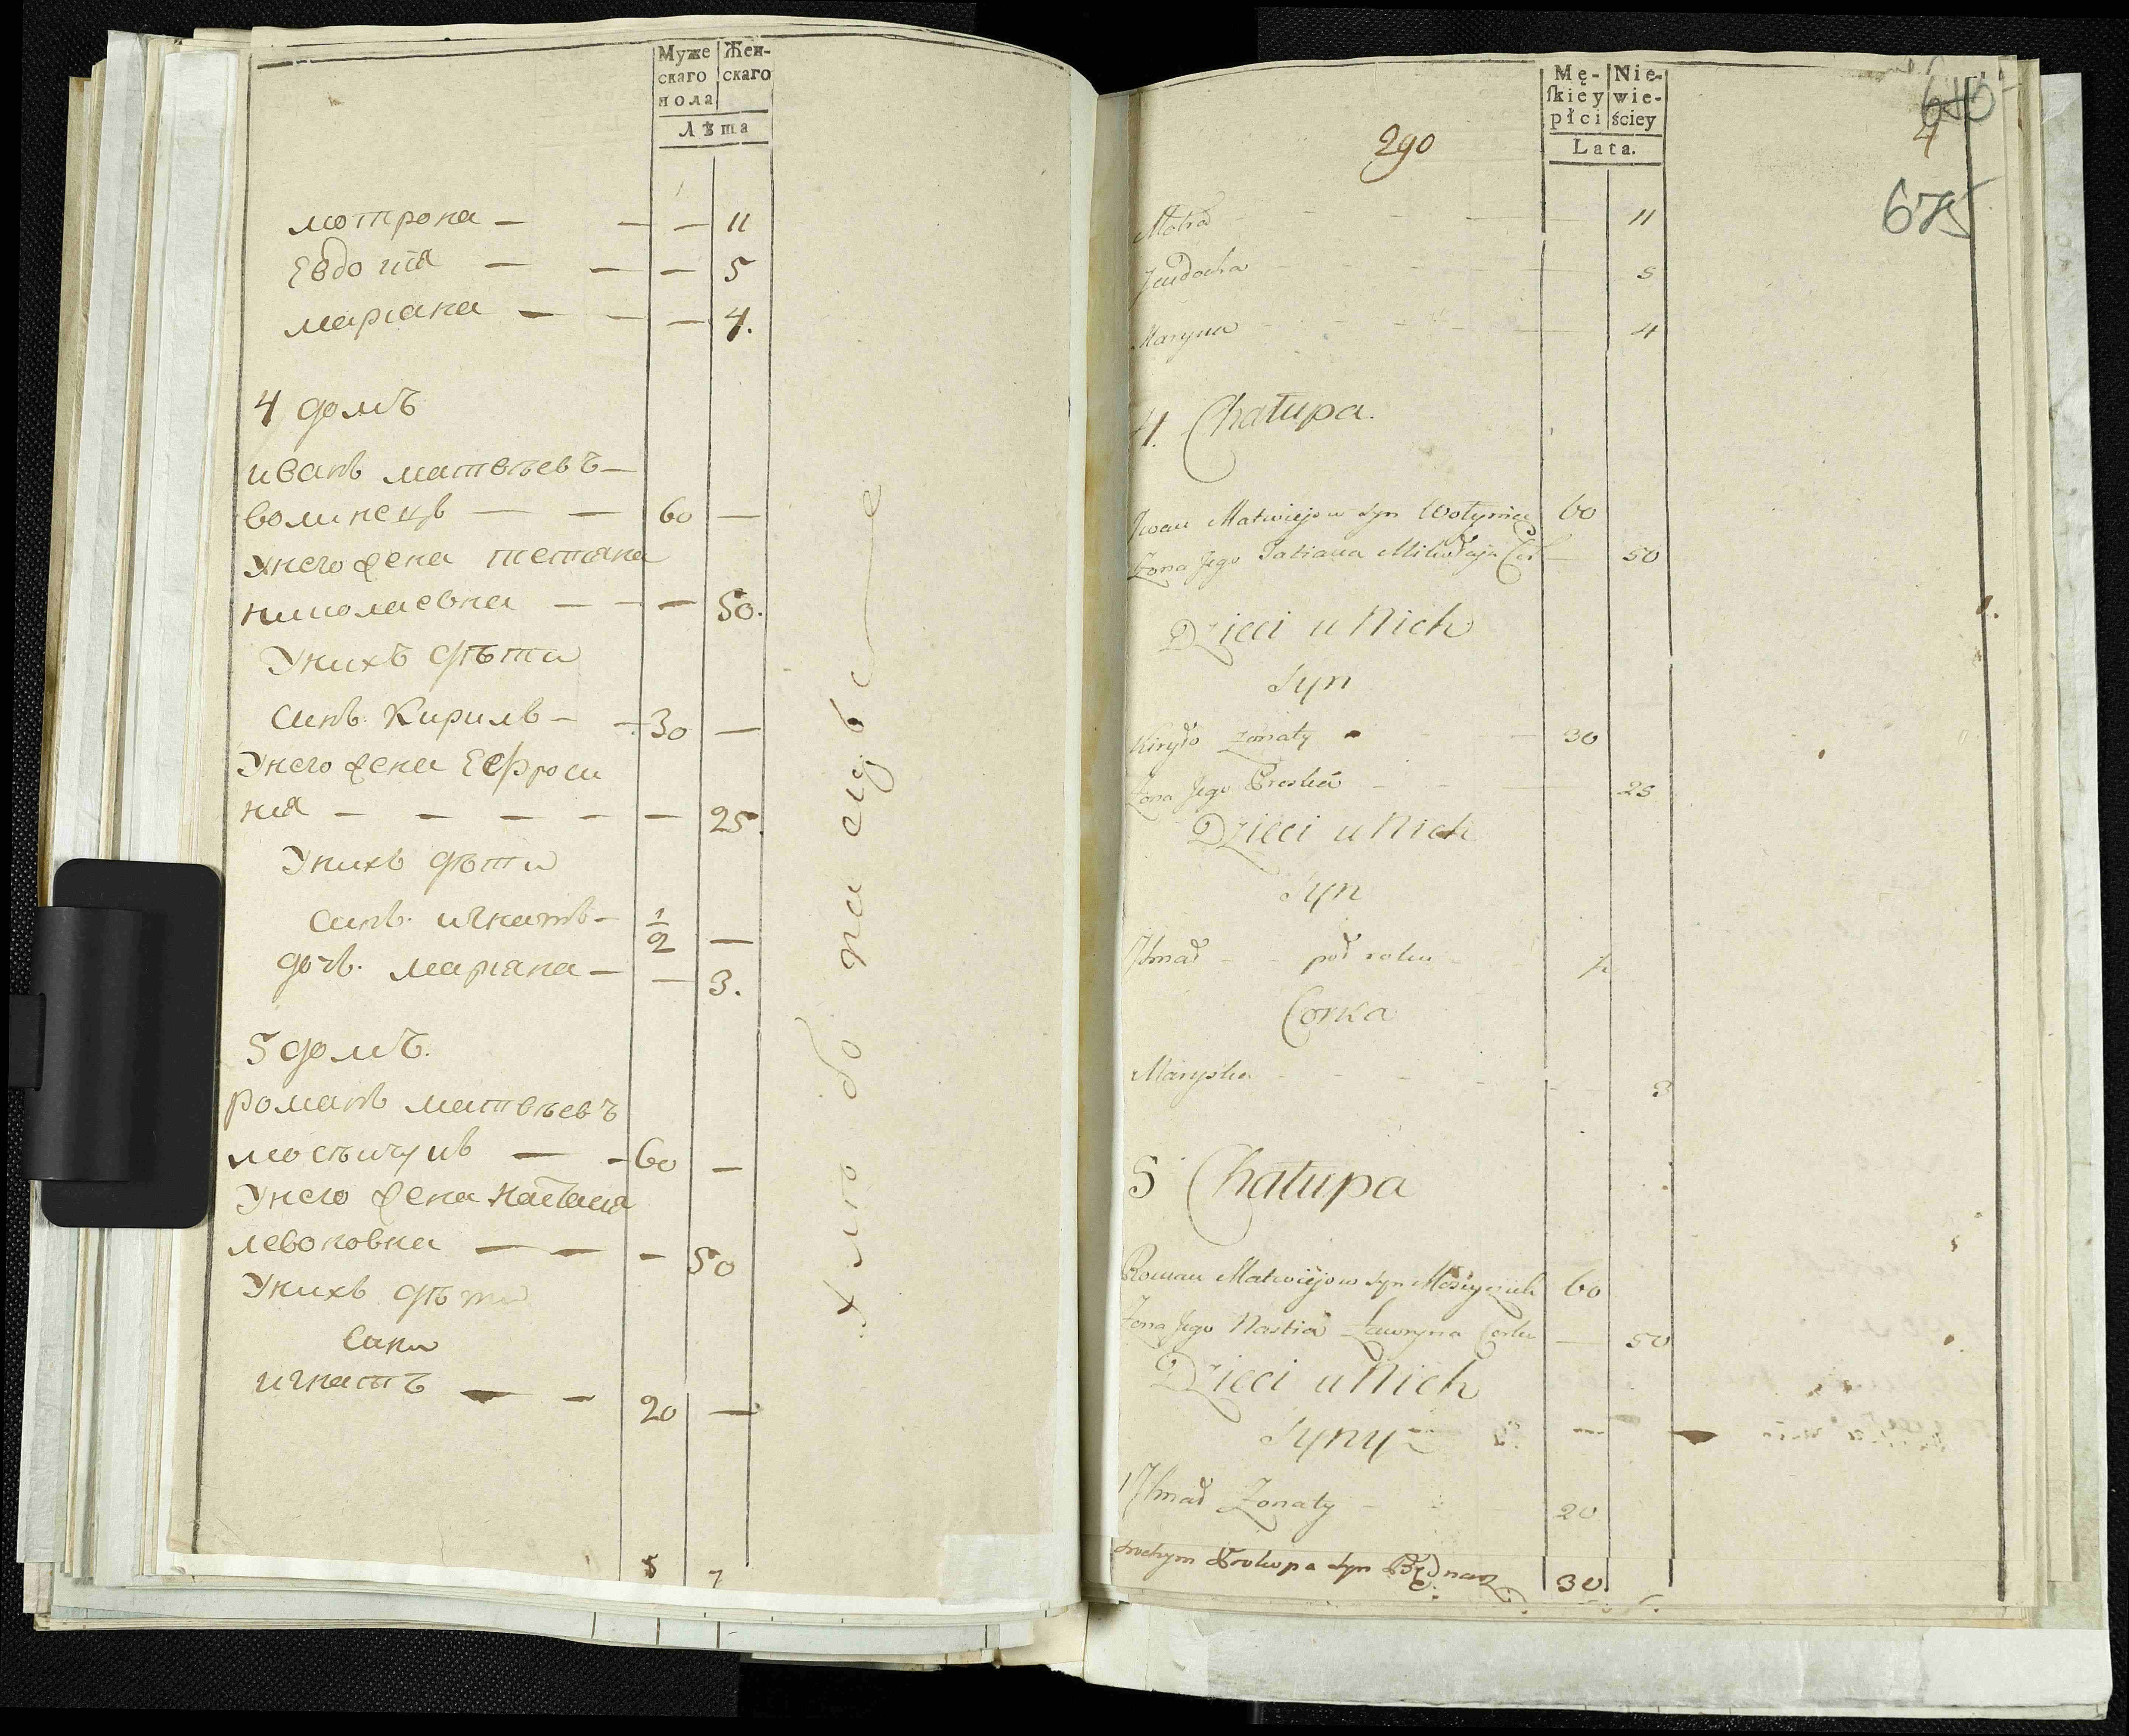 Муже Жен-
скаго скаго
пола
Лѣта
мотрона — — — 11
Евдокія — — — 5
маріана — — — 4.
4 домъ
иванъ матвѣевъ —
волинецъ — — 60 —
унего жена тетяна
николаевна — — — 50.
Унихъ дѣти
Синъ Кирилъ — — 30 —
Унего жена Евфроси
нія — — — — — 25.
Унихъ дѣти
Синъ игнатъ — 1/2 —
дочь маріана — — 3.
5 домъ.
романъ матвѣевъ
60 —
Унего жена Настасія
левоновна — — — 50
Унихъ дѣти
Сини
игнатъ — — 20 —
5 7
Mę- Nie-
ſkiey wie-
płci ściey
Lata.
4
290
675
Motra 11
Jeudocha 5
Maryna 4
4. Chałupa.
Jwan Matwiejow syn Wołyniec 60
Żona Jego Tatiana Mikołaja Cor 50
Dzieci u Nich
Syn
Kiryło Zonaty 30
Żona Jego Preska 25
Dzieci u Nich
Syn
Jhnad pod rokiem 1/2
Corka
Maryska 3
5 Chałupa
Roman Matwiejow syn 60
Żona Jego Nastia Corka 50
Dzieci u Nich
Syny
1 Jhnad Zonaty 20
Prokopa syn Bednarz 30